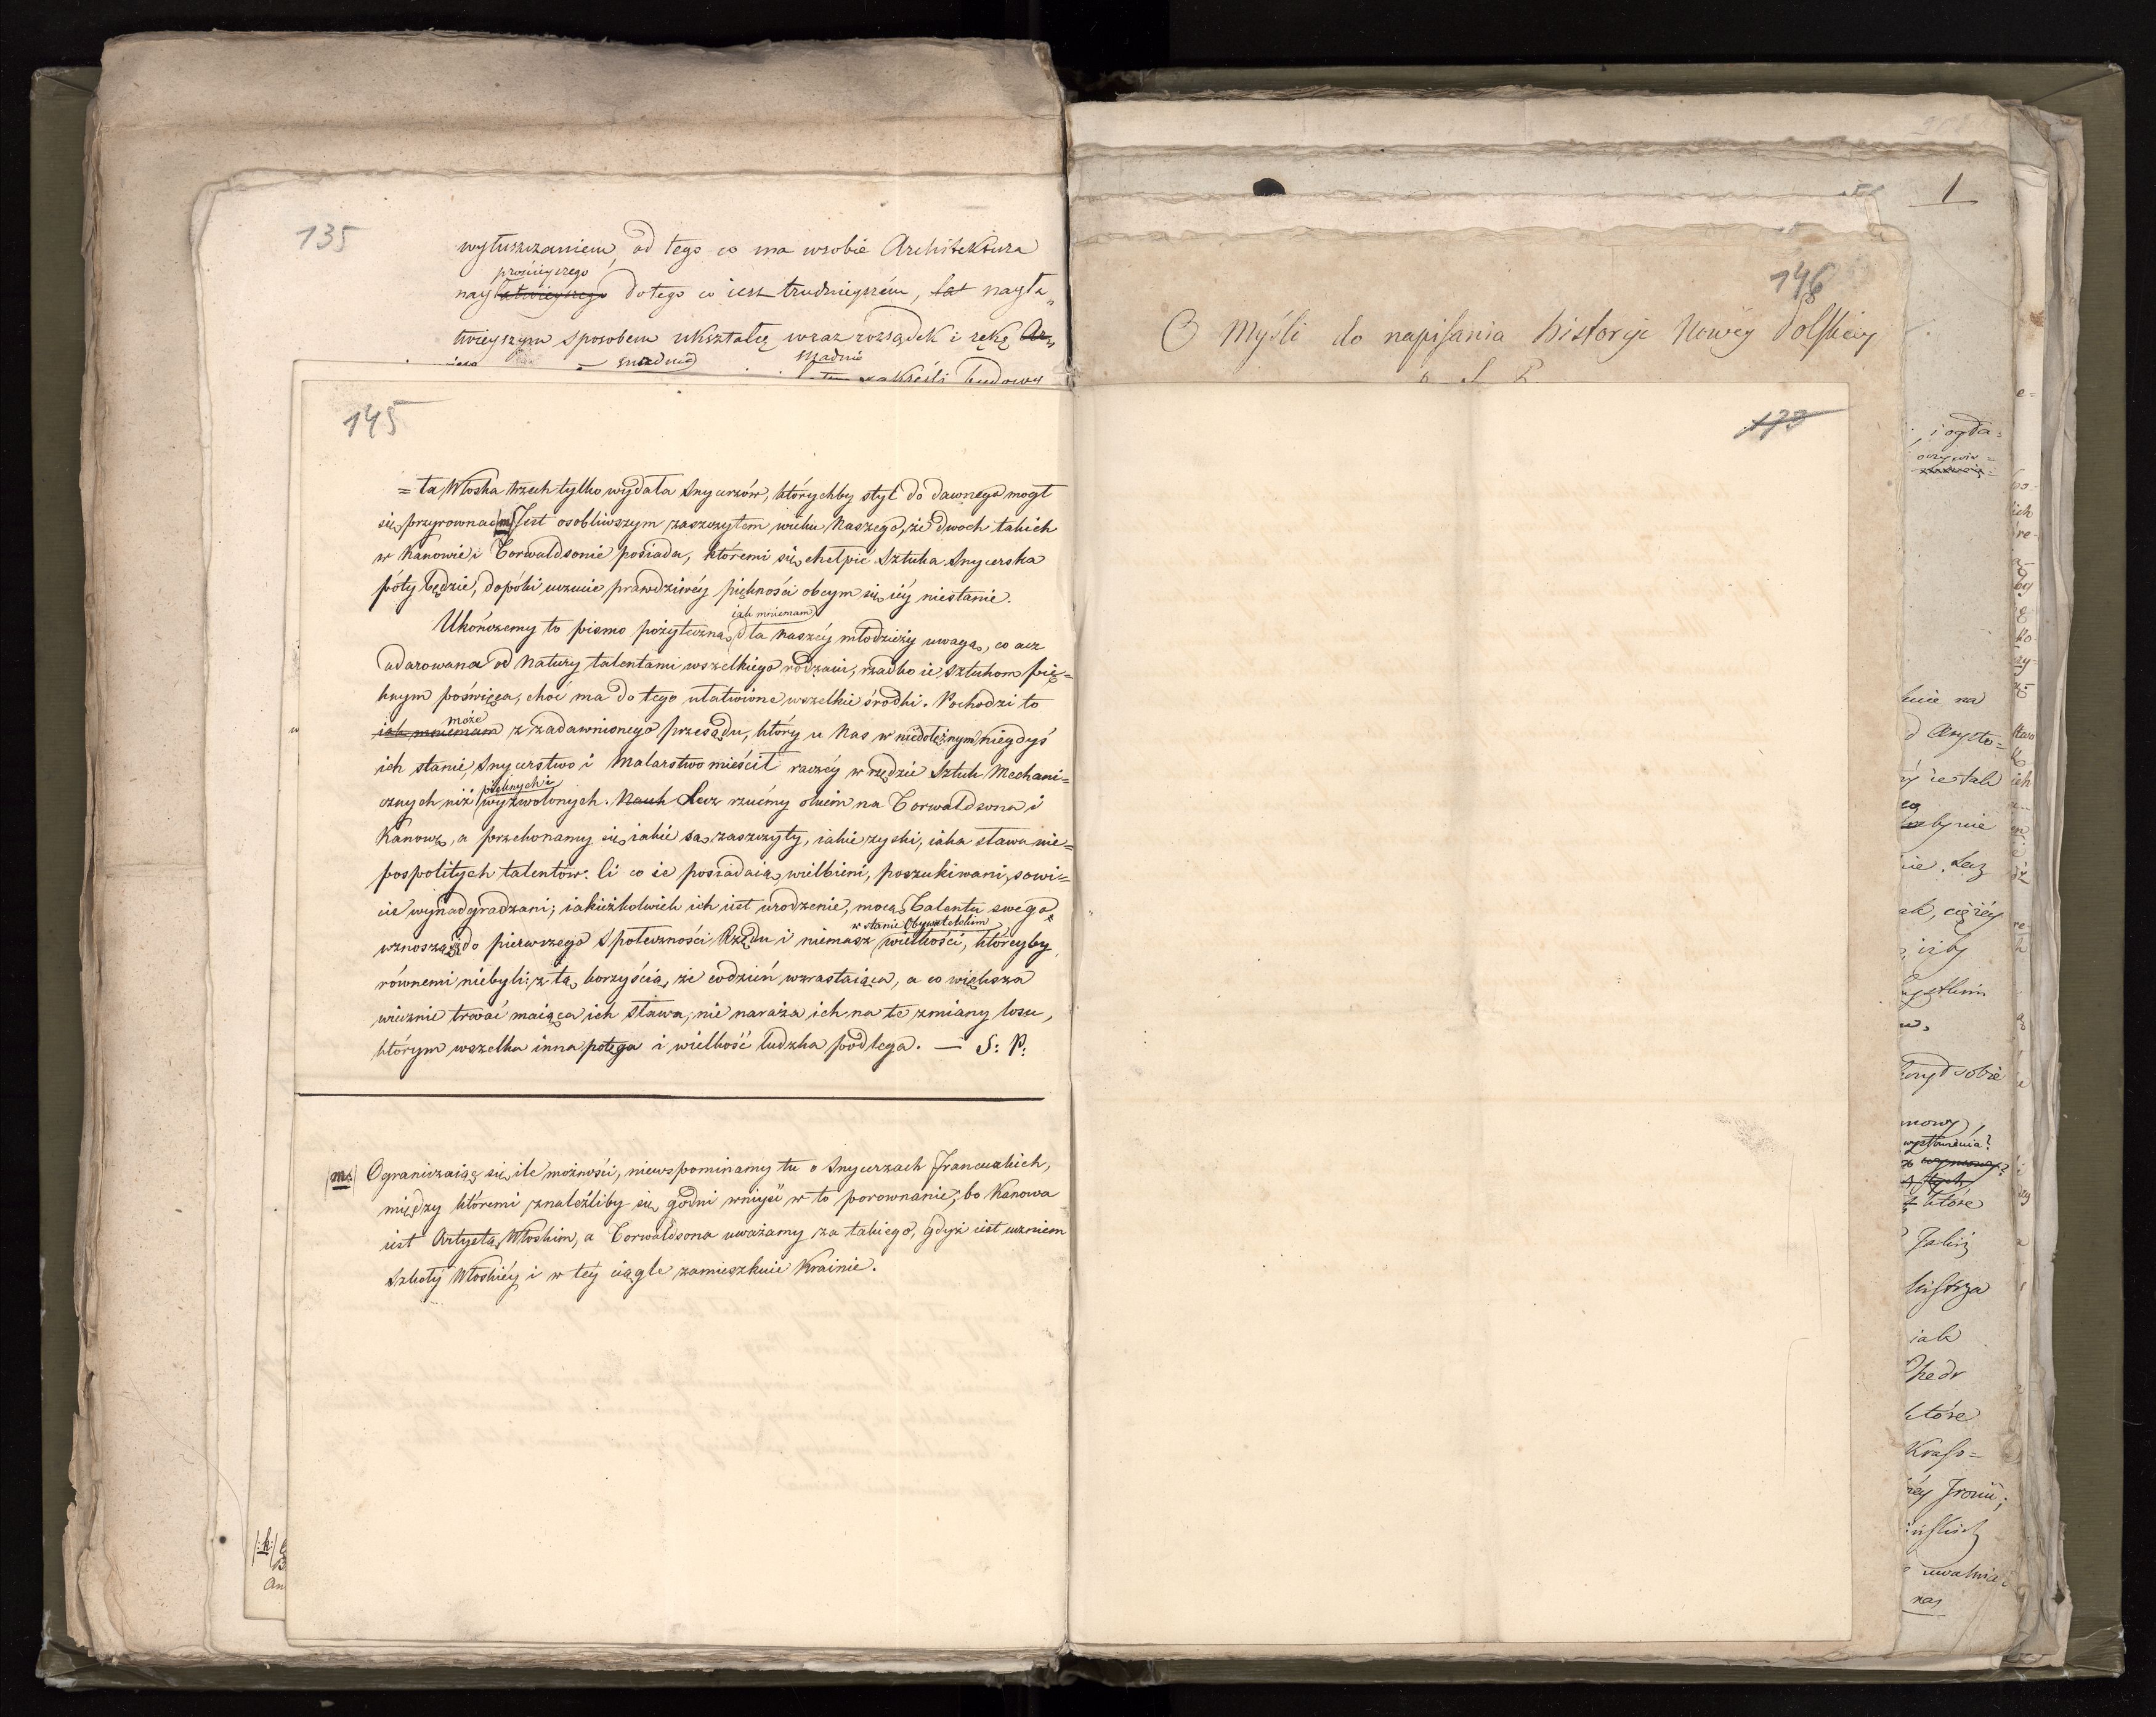 135
wyłuszczaniem, od tego co ma wsobie Architektura
prościeyszego
nay łatwieyszego do tego co iest trudnieyszém, łat nayła„
twieyszym sposobem ukształcę wraz rozsądek i rękę Ar„
zakreśli budowy
145
= ta Włoska trzech tylko wydała Snycerzów, którychby styl do dawnego mogł
się przyrownać |m| Jest osobliwszym zaszczytem wieku Naszego, że dwoch takich
w Kanowie i Torwaldsonie posiada, któremi się chełpić Sztuka Snycerska
póty będzie, dopóki uczucie prawdziwéy piękności obcym się iéy niestanie.
iak mniemam
Ukończemy to pismo pożyteczną dla Naszéy młodzieży uwagą, co acz
udarowana od Natury talentami wszelkiego rodzaiu, rzadko ie Sztukom pię=
knym poświęca, choć ma do tego ułatwione wszelkie środki. Pochodzi to
może
iak mniemam z zadawnionego przesądu, który u Nas w niedołężnym niegdyś
ich stanie, Snycerstwo i Malarstwo mieścił raczéy w rzędzie Sztuk Mechani=
pięknych i
cznych niż wyzwolonych. Nauk Lecz rzućmy okiem na Torwaldsona i
Kanowę, a przekonamy się iakie są zaszczyty, iakie zyski, iaka sława nie=
pospolitych talentów. Ci co ie posiadaią, wielbieni, poszukiwani, sowi=
cie wynadgradzani; iakieżkolwiek ich iest urodzenie, mocą Talentu swego
w stanie Obywatelskim
wznoszą się do pierwszego Społeczności Rzędu i niemasz wielkości, któreyby
równemi niebyli: z tą korzyścią, że codzień wzrastaiąca, a co większa
wiecznie trwać maiąca ich Sława, nie naraża ich na te zmiany losu,
którym wszelka inna potęga i wielkość ludzka podlega. — S: P:
|m:| Ograniczaiąc się ile możności, niewspominamy tu o Snycerzach Francuzkich,
między któremi znaleźliby się godni wniyść w to porownanie; bo Kanowa
iest Artystą Włoskim, a Torwaldsona uważamy za takiego, gdyż iest uczniem
Szkoły Włoskiéy i w téy ciągle zamieszkuie Krainie.
1
146
O Myśli do napisania historyi Nowéy Polskiéy
173